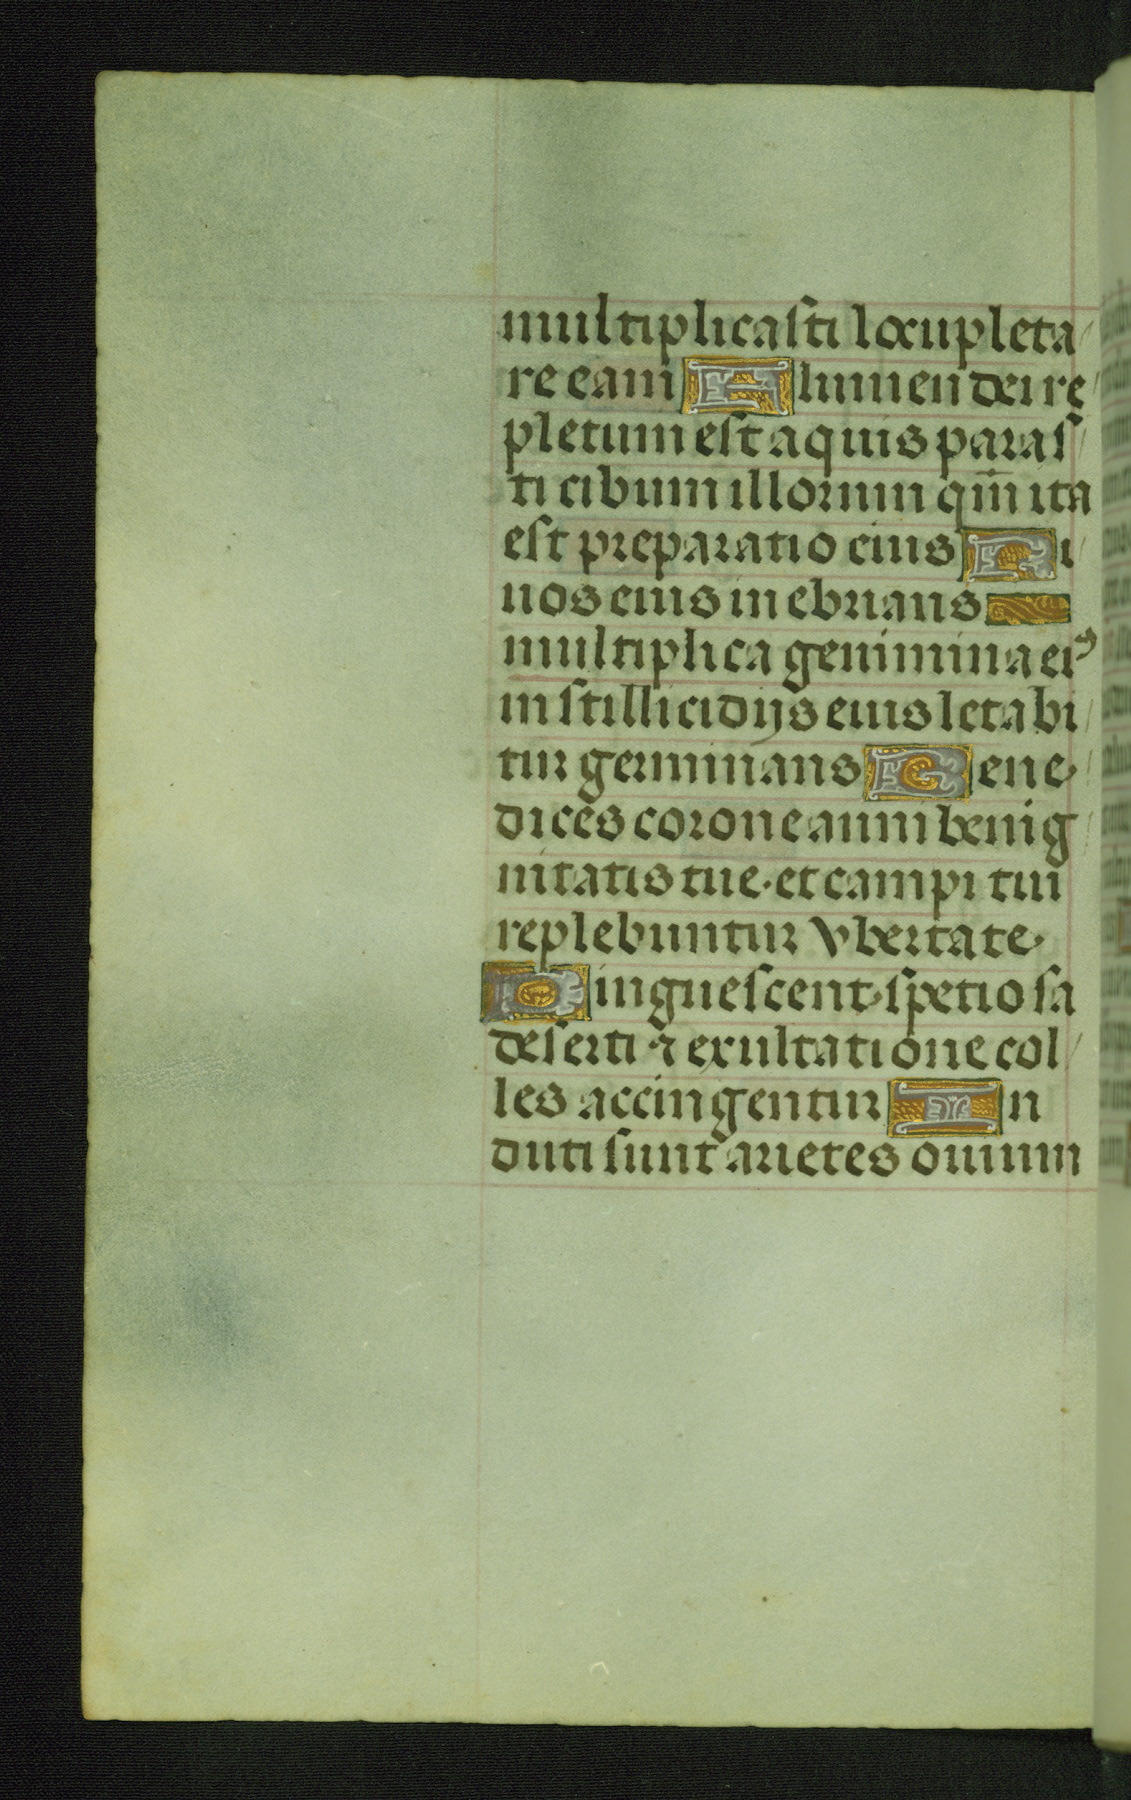 multiplicasti locupleta
re eam Flumen dei re
pletum est aquis paras
ti cibum illorum qm̄ ita
est preparatio eius Ri
uos eius inebrians
multiplica genimina ei⁹
in stillicidijs eius letabi
tur germinans Bene
dices corone anni benig
nitatis tue · et campi tui
replebuntur vbertate ·
Pinguescent · spetiosa
deserti ⁊ exultatione col
les accingentur In
duti sunt arietes ouium